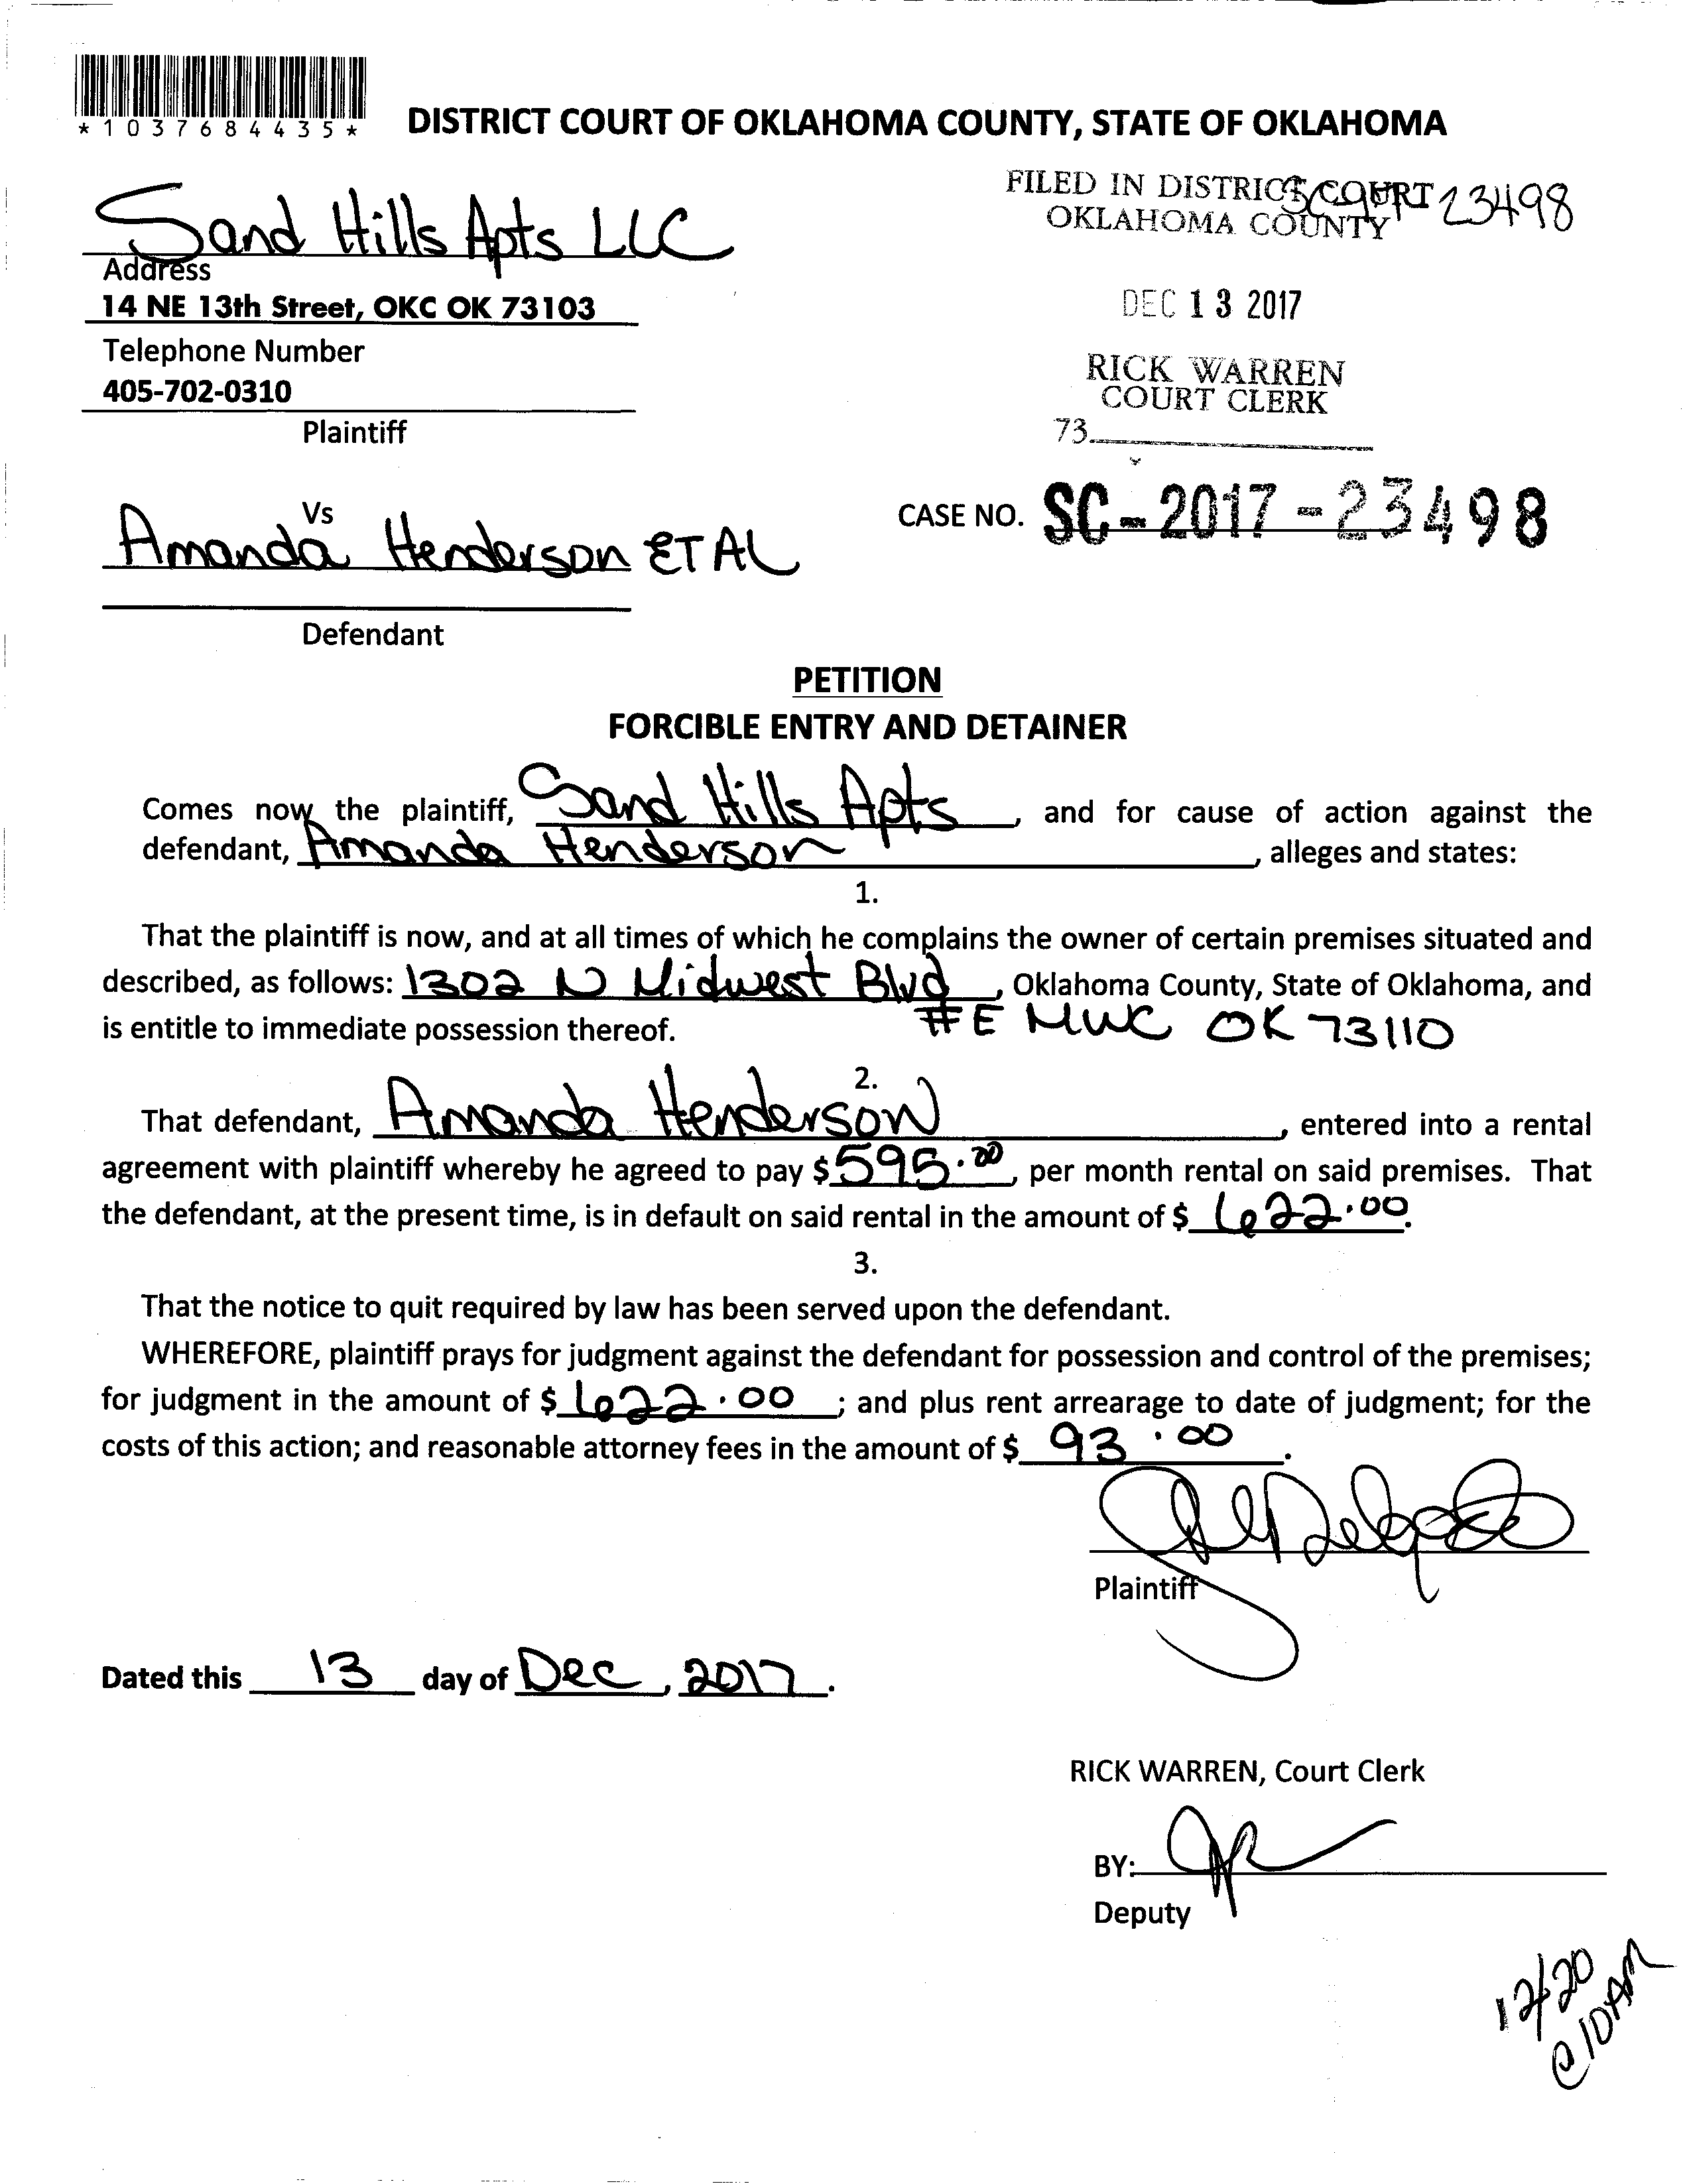 *1037684435*
DISTRICT COURT OF OKLAHOMA COUNTY, STATE OF OKLAHOMA
FILED IN DISTRICT COURT
OKLAHOMA COUNTY
23498
Sand Hills Apts LLC
Address
14 NE 13th Street, OKC OK 73103
DEC 13 2017
Telephone Number
405-702-0310
RICK WARREN
COURT CLERK
73
Plaintiff
Vs
CASE NO. SC-2017-23498
Amanda Henderson ET AL
Defendant
PETITION
FORCIBLE ENTRY AND DETAINER
Comes now the plaintiff, Sand Hills Apts, and for cause of action against the
defendant, Amanda Henderson, alleges and states:
1.
That the plaintiff is now, and at all times of which he complains the owner of certain premises situated and
described, as follows: 1302 N Midwest Blvd, Oklahoma County, State of Oklahoma, and
is entitle to immediate possession thereof. #E MWC OK 73110
2.
That defendant, Amanda Henderson, entered into a rental
agreement with plaintiff whereby he agreed to pay $595.00, per month rental on said premises. That
the defendant, at the present time, is in default on said rental in the amount of $ 622.00.
3.
That the notice to quit required by law has been served upon the defendant.
WHEREFORE, plaintiff prays for judgment against the defendant for possession and control of the premises;
for judgment in the amount of $ 622.00 ; and plus rent arrearage to date of judgment; for the
costs of this action; and reasonable attorney fees in the amount of $ 93.00.
Plaintiff
Dated this 13 day of Dec, 2017.
RICK WARREN, Court Clerk
BY:
Deputy
12/20
@10AM